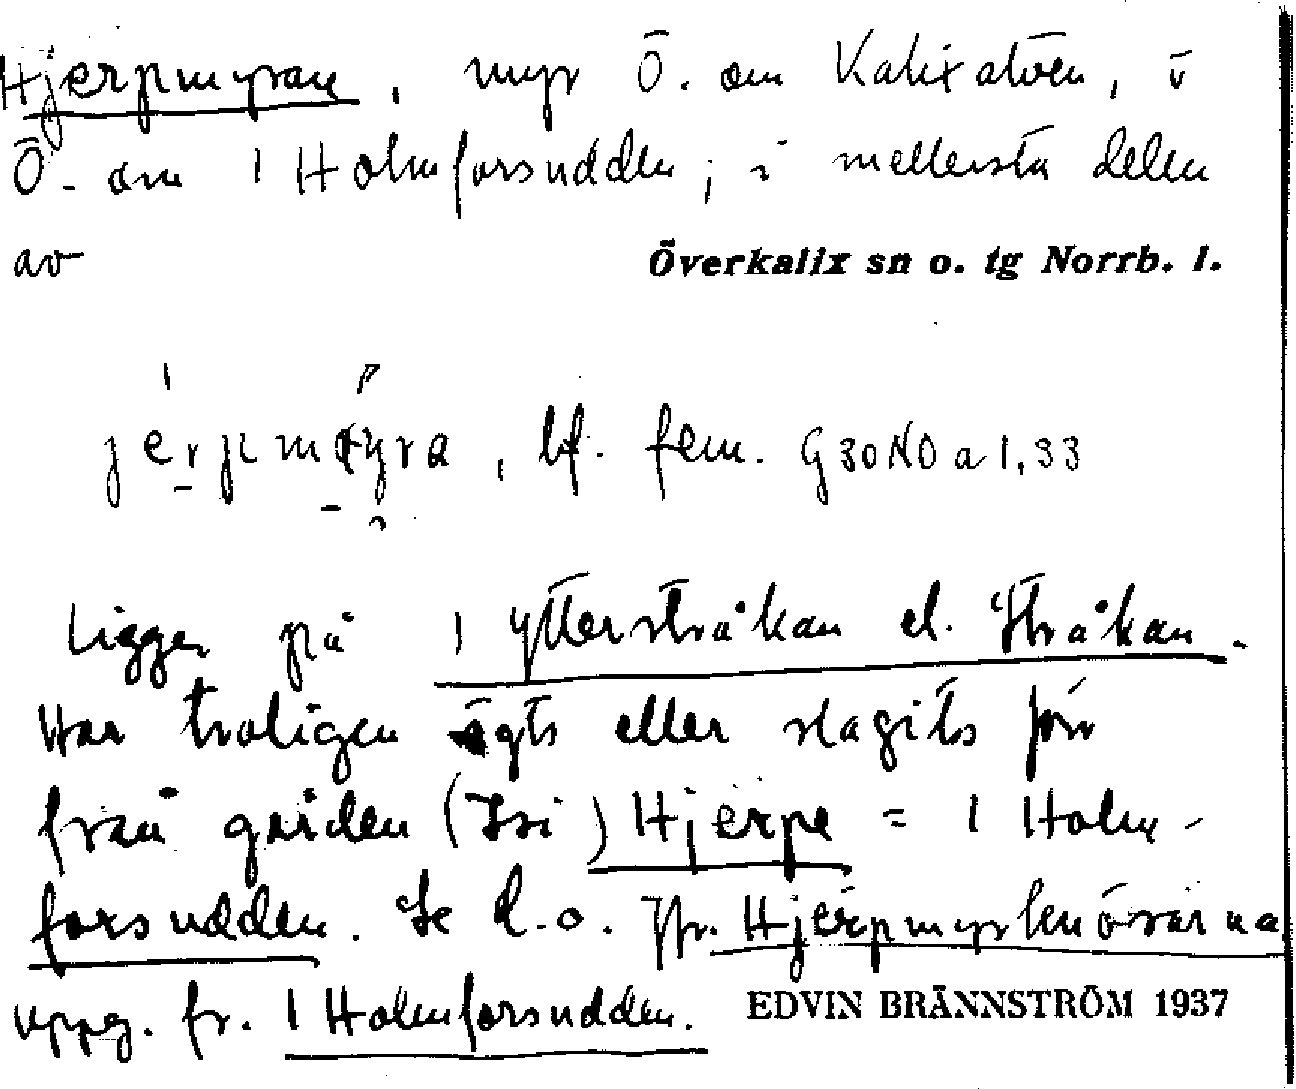 Hjerpmyran, myr Ö. om Kalixälven, i
Ö. om 1 Holmforsudden; i mellersta delen
av Överkalix sn o. tg Norrb. l.
jerpmyra, bf. fem. G30NO a 1,33
Ligger på 1 Ytterstråkan el. Stråkan.
Har troligen ägts eller slagits förr
från gården (Isi) Hjerpe = 1 Holm-
forsudden. Se d.o. Jfr. Hjerpmyrlenövärna
uppg. fr. 1 Holmforsudden. EDVIN BRÄNNSTRÖM 1937